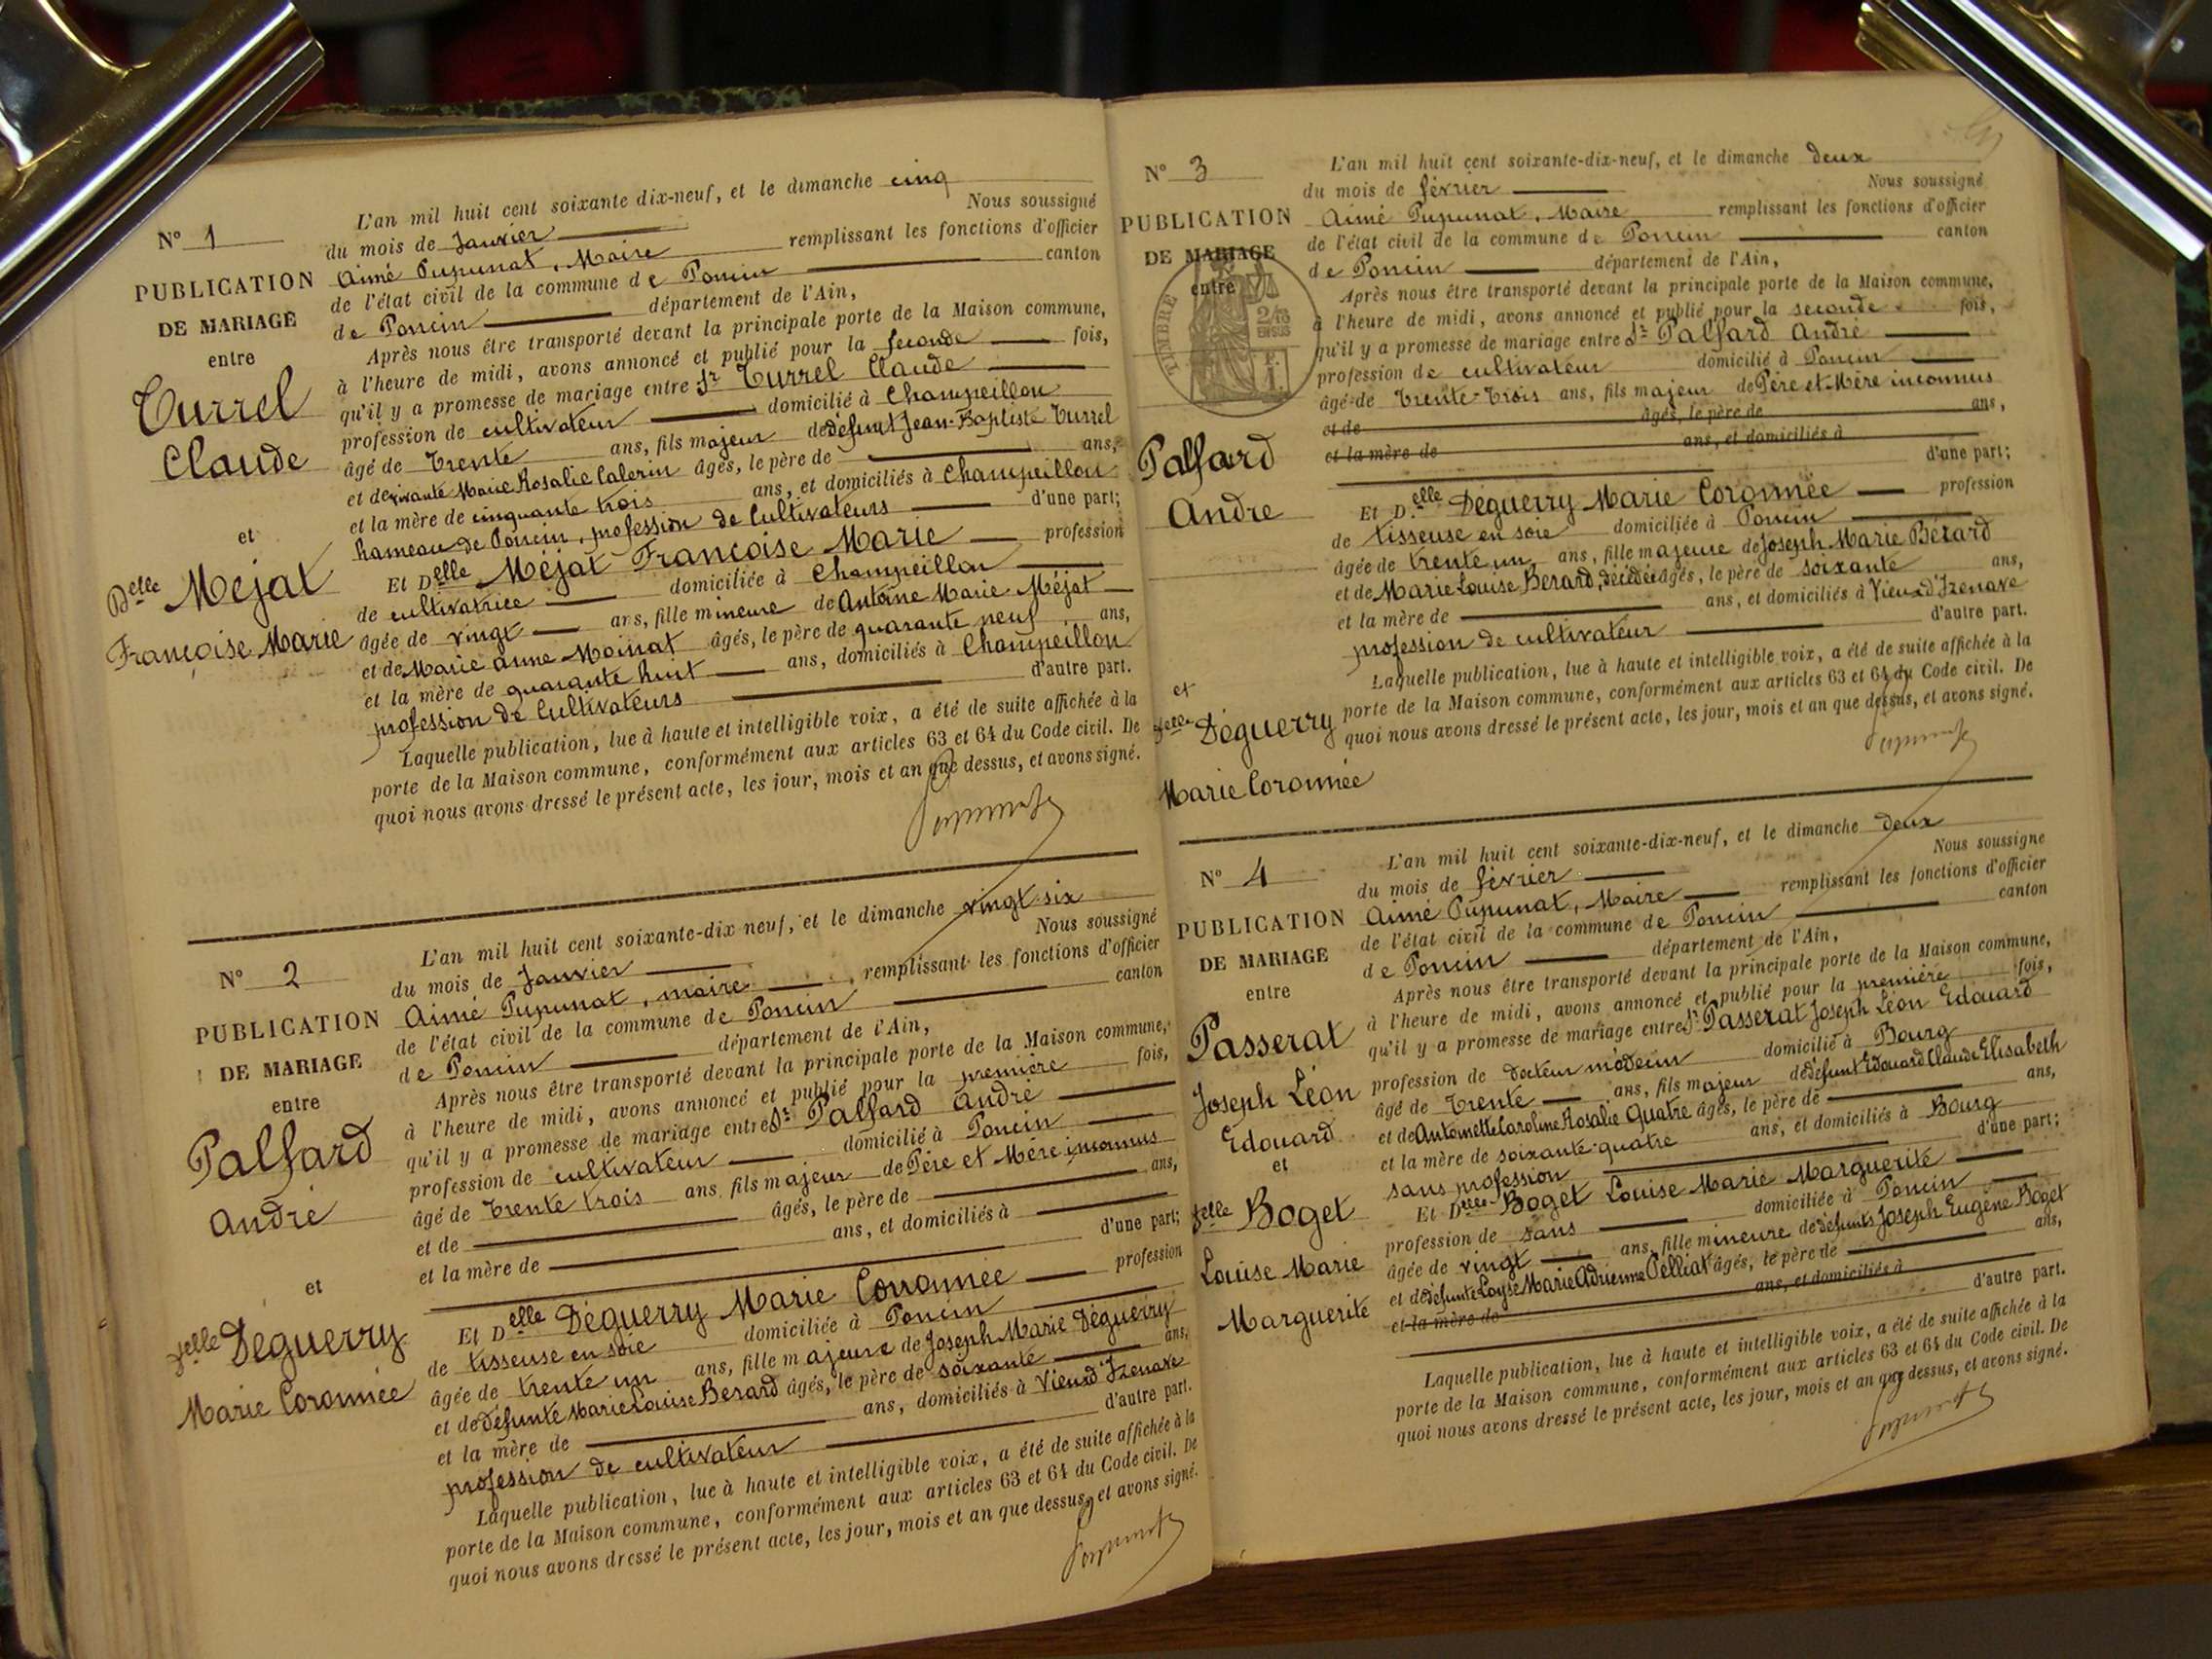 N° 1
PUBLICATION
DE MARIAGE
entre
Turrel
Claude
et
Delle Méjat
Françoise Marie
L'an mil huit cent soixante dix-neuf, et le dimanche cinq
du mois de Janvier Nous soussigné
Aimé Pupunat, Maire remplissant les fonctions d'officier
de l'état civil de la commune de Poncin canton
de Poncin département de l'Ain,
Après nous être transporté devant la principale porte de la Maison commune,
à l'heure de midi, avons annoncé et publié pour la seconde fois,
qu'il y a promesse de mariage entre Sr Turrel Claude
profession de cultivateur domicilié à Champeillon
âgé de Trente ans, fils majeur de défunt Jean-Baptiste Turrel
et de vivante Marie Rosalie Calerin âgés, le père de ans,
et la mère de cinquante trois ans, et domiciliés à Champeillon
hameau de Poncin, profession de Cultivateurs d'une part;
Et Delle Méjat Françoise Marie profession
de cultivatrice domiciliée à Champeillon
âgée de vingt ans, fille mineure de Antoine Marie Méjat
et de Marie anne Moinat âgés, le père de quarante neuf ans,
et la mère de quarante huit ans, domiciliés à Champeillon
profession de Cultivateurs d'autre part.
Laquelle publication, lue à haute et intelligible voix, a été de suite affichée à la
porte de la Maison commune, conformément aux articles 63 et 64 du Code civil. De
quoi nous avons dressé le présent acte, les jour, mois et an que dessus, et avons signé.
Pupunat
N° 2
PUBLICATION
DE MARIAGE
entre
Palfard
André
et
Delle Déguerry
Marie Coronnée
L'an mil huit cent soixante-dix neuf, et le dimanche vingt-six
du mois de Janvier Nous soussigné
Aimé Pupunat, maire, remplissant les fonctions d'officier
de l'état civil de la commune de Poncin canton
de Poncin département de l'Ain,
Après nous être transporté devant la principale porte de la Maison commune,
à l'heure de midi, avons annoncé et publié pour la première fois,
qu'il y a promesse de mariage entre Sr Palfard André
profession de cultivateur domicilié à Poncin
âgé de Trente trois ans, fils majeur de Père et Mère inconnus
et de âgés, le père de ans,
et la mère de ans, et domiciliés à
d'une part;
Et Delle Déguerry Marie Coronnée profession
de tisseuse en soie domiciliée à Poncin
âgée de trente un ans, fille majeure de Joseph Marie Déguerry
et de défunte Marie Louise Berard âgés, le père de soixante ans,
et la mère de ans, domiciliés à Vieu d'Izenave
profession de cultivateur d'autre part.
Laquelle publication, lue à haute et intelligible voix, a été de suite affichée à la
porte de la Maison commune, conformément aux articles 63 et 64 du Code civil. De
quoi nous avons dressé le présent acte, les jour, mois et an que dessus, et avons signé.
Pupunat
N° 3
PUBLICATION
DE MARIAGE
entre
TIMBRE
2/10
EN SUS
Palfard
André
et
Delle Déguerry
Marie Coronnée
L'an mil huit cent soixante-dix-neuf, et le dimanche deux
du mois de février Nous soussigné
Aimé Pupunat, Maire remplissant les fonctions d'officier
de l'état civil de la commune de Poncin canton
de Poncin département de l'Ain,
Après nous être transporté devant la principale porte de la Maison commune,
à l'heure de midi, avons annoncé et publié pour la seconde fois,
qu'il y a promesse de mariage entre Sr Palfard André
profession de cultivateur domicilié à Poncin
âgé de Trente-Trois ans, fils majeur de Père et Mère inconnus
et de âgés, le père de ans,
et la mère de ans, et domiciliés à
d'une part;
Et D.elle Déguerry Marie Coronnée profession
de tisseuse en soie domiciliée à Poncin
âgée de trente un ans, fille majeure de Joseph Marie Bérard
et de Marie Louise Berard, décédée âgés, le père de soixante ans,
et la mère de ans, et domiciliés à Vieu d'Izenave
profession de cultivateur d'autre part.
Laquelle publication, lue à haute et intelligible voix, a été de suite affichée à la
porte de la Maison commune, conformément aux articles 63 et 64 du Code civil. De
quoi nous avons dressé le présent acte, les jour, mois et an que dessus, et avons signé.
Pupunat
N° 4
PUBLICATION
DE MARIAGE
entre
Passerat
Joseph Léon
Edouard
et
Delle Boget
Louise Marie
Marguerite
L'an mil huit cent soixante-dix-neuf, et le dimanche deux
du mois de février Nous soussigné
Aimé Pupunat, Maire remplissant les fonctions d'officier
de l'état civil de la commune de Poncin canton
de Poncin département de l'Ain,
Après nous être transporté devant la principale porte de la Maison commune,
à l'heure de midi, avons annoncé et publié pour la première fois,
qu'il y a promesse de mariage entre Sr Passerat Joseph Léon Edouard
profession de docteur médecin domicilié à Bourg
âgé de Trente ans, fils majeur de défunt Edouard Claude Elisabeth
et de Antoinette Caroline Rosalie Quatre âgés, le père de ans,
et la mère de soixante-quatre ans, et domiciliés à Bourg
sans profession d'une part;
Et Delle Boget Louise Marie Marguerite
profession de sans domiciliée à Poncin
âgée de vingt ans, fille mineure de défunts Joseph Eugène Boget
et de défunte Louyse Marie Adrienne Pelliat âgés, le père de ans,
et la mère de ans, et domiciliés à
d'autre part.
Laquelle publication, lue à haute et intelligible voix, a été de suite affichée à la
porte de la Maison commune, conformément aux articles 63 et 64 du Code civil. De
quoi nous avons dressé le présent acte, les jour, mois et an que dessus, et avons signé.
Pupunat